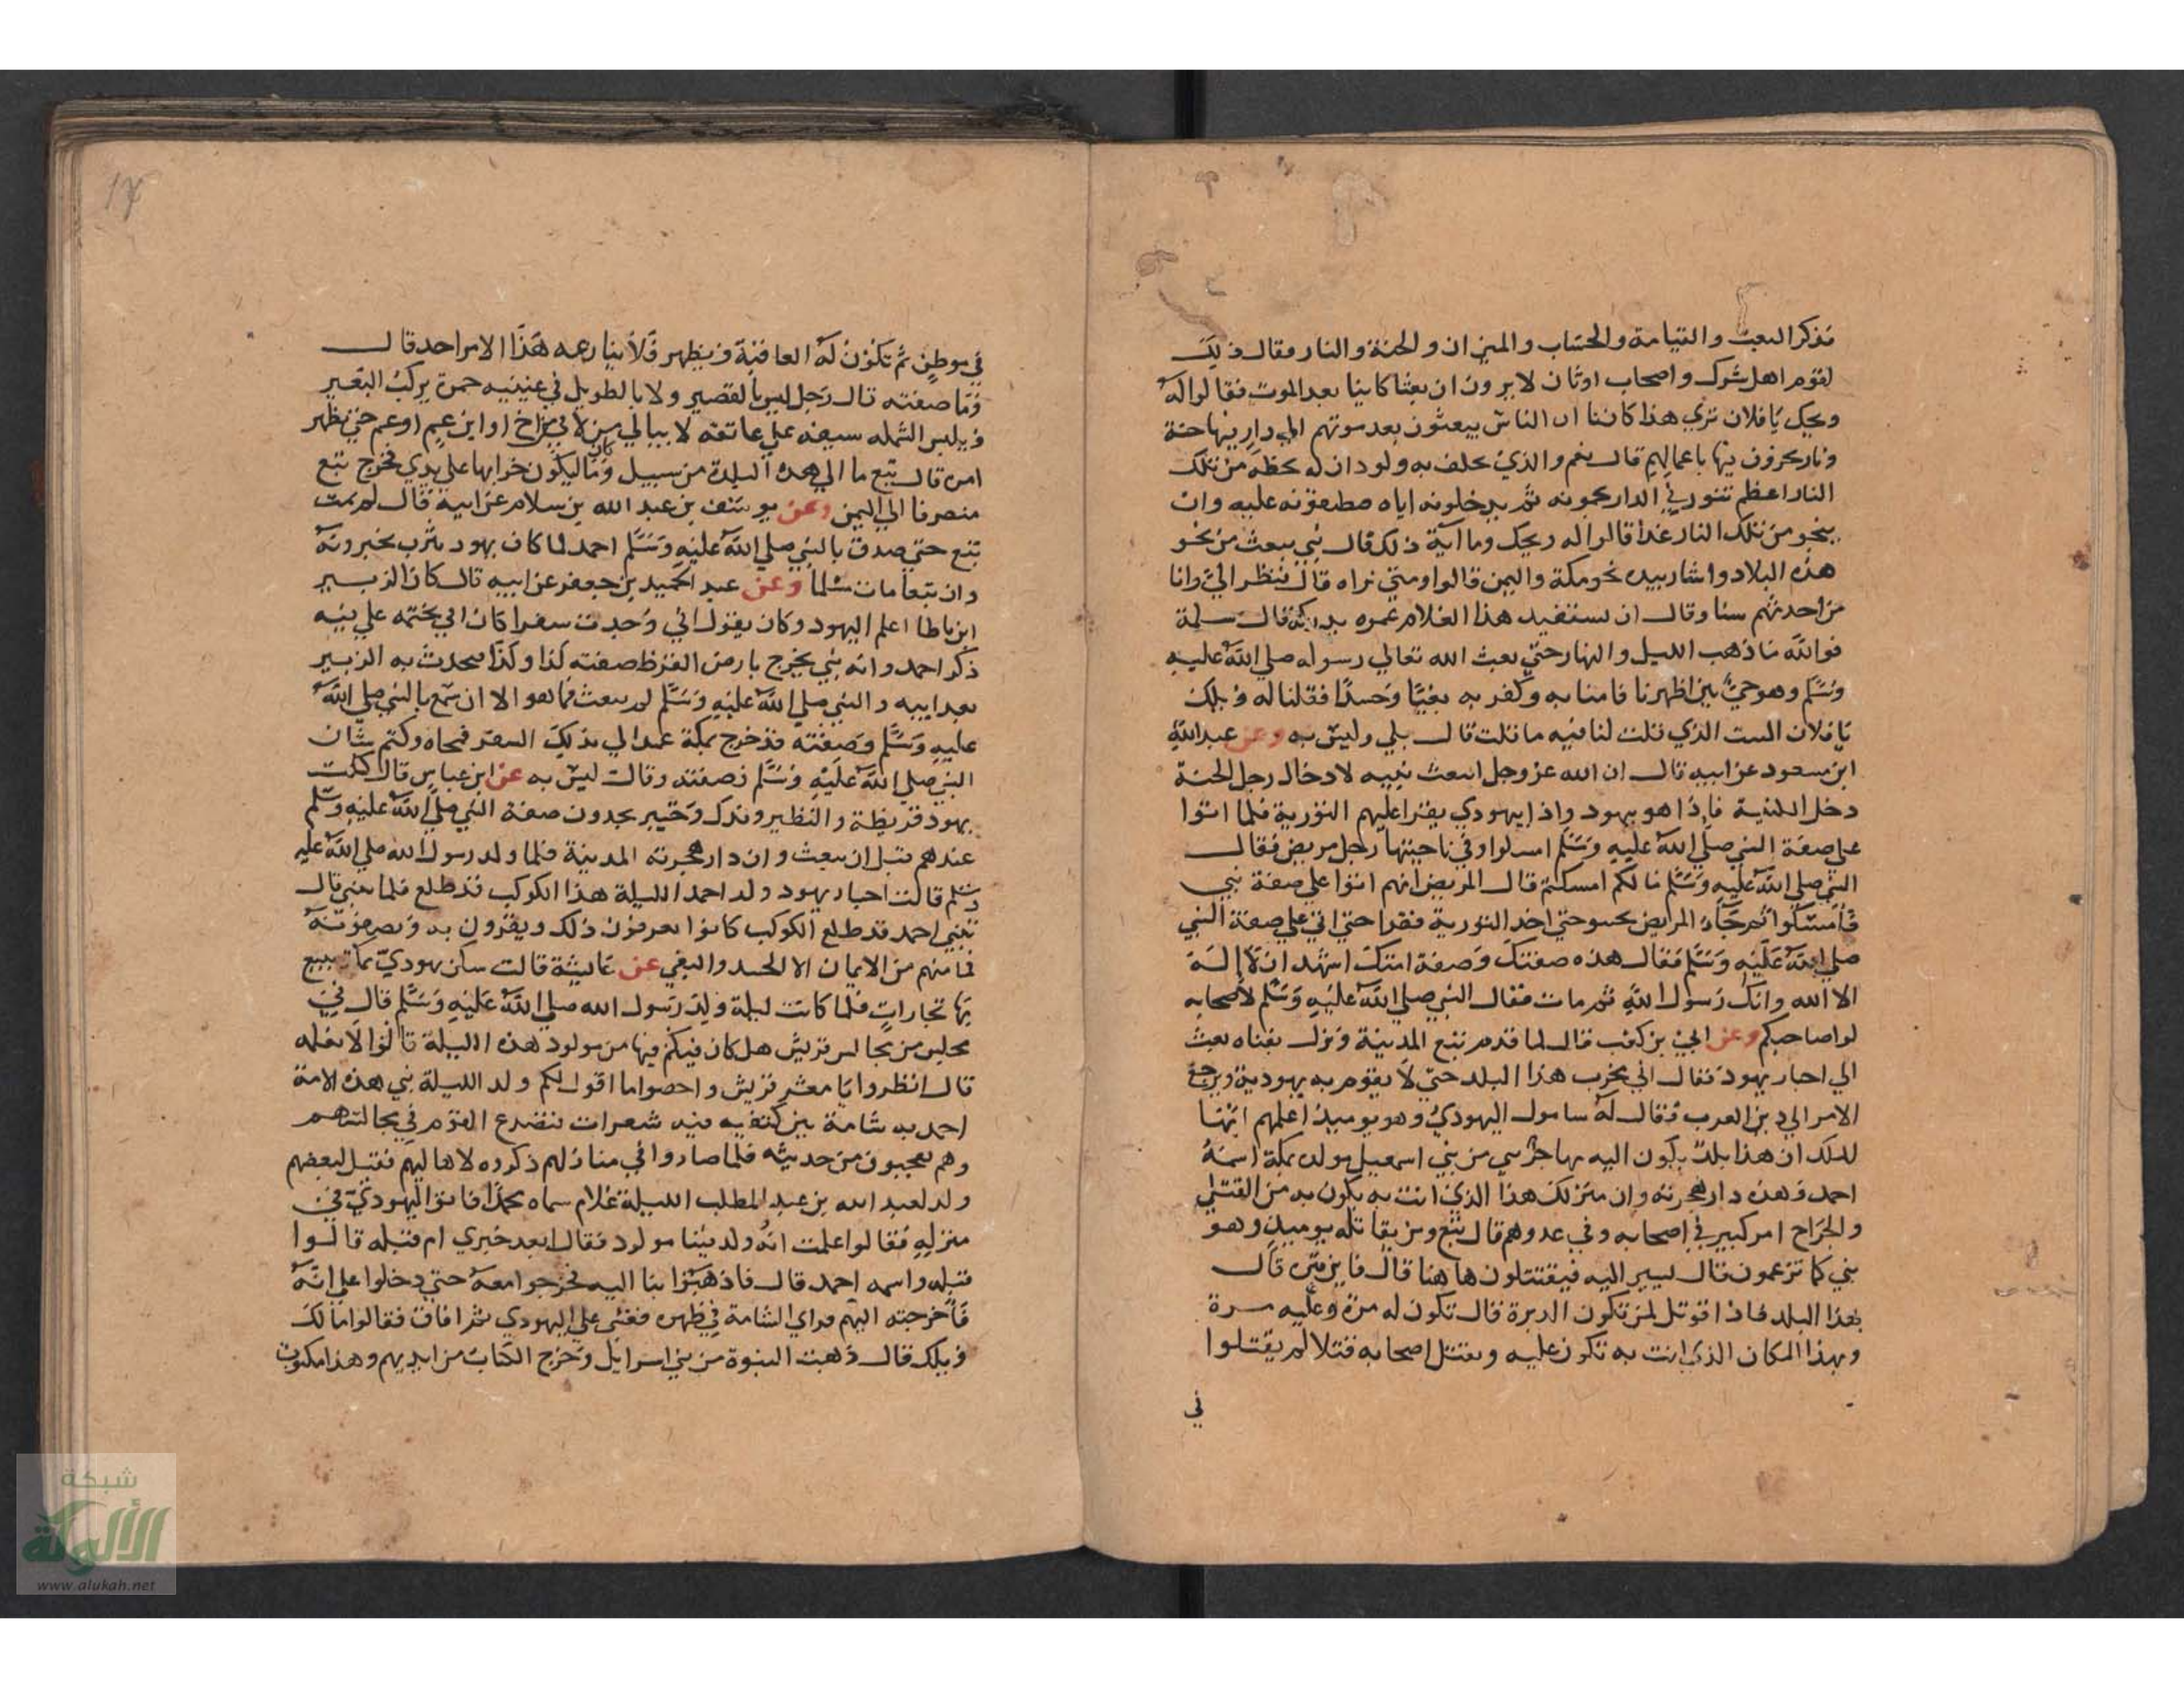 فذكر البعث والقيامة والحساب والميزان والجنة والنار فقال ذلك
لقوم اهل شرك واصحاب اوثان لا يرون ان بعثا كاينا بعد الموت فقالوا له
ويحك يا فلان تري هذا كاينا ان الناس يبعثون بعد موتهم الي دار فيها جنة
ونار يجزون فيها باعمالهم قال نعم والذي يحلف به ولود ان له بحظه من تلك
النار اعظم تنور في الدار يحمونه ثم يدخلونه اياه فيطبقونه عليه وان
ينجو من تلك النار غدا قالوا له ويحك وما آية ذلك قال نبي يبعث من نحو
هذه البلاد واشار بيده نحو مكة واليمن قالوا ومتي نراه قال فنظر الي وانا
من احدثهم سنا وقال ان يستنفد هذا الغلام عمره يدركه قال سلمة
فوالله ما ذهب الليل والنهار حتي بعث الله تعالي رسوله صلي الله عليه
وسلم وهو حي بين اظهرنا فامنا به وكفر به بغيا وحسدا فقلنا له ويلك
يا فلان الست الذي قلت لنا فيه ما قلت قال بلي وليس به وعن عبد الله
ابن مسعود عن ابيه قال ان الله عز وجل ابتعث نبيه لادخال رجل الجنة
دخل الكنيسة فاذا هو بيهود واذا يهودي يقرا عليهم التورية فلما اتوا
علي صفة النبي صلي الله عليه وسلم امسكوا وفي ناحيتها رجل مريض فقال
النبي صلي الله عليه وسلم ما لكم امسكتم قال المريض انهم اتوا علي صفة نبي
فامسكوا ثم جاء المريض يحبو حتي اخذ التورية فقرا حتي اتي علي صفة النبي
صلي الله عليه وسلم فقال هذه صفتك وصفة امتك اشهد ان لا اله
الا الله وانك رسول الله ثم مات فقال النبي صلي الله عليه وسلم لاصحابه
لوا صاحبكم وعن ابي بن كعب قال لما قدم تبع المدينة ونزل بقناه بعث
الي احبار يهود فقال اني مخرب هذا البلد حتي لا يقوم به يهودية ويرجع
الامر الي دين العرب فقال له سامول اليهودي وهو يوميذ اعلمهم ايها
الملك ان هذا بلد يكون اليه مهاجر نبي من بني اسمعيل مولده بمكة اسمه
احمد وهذه دار هجرته وان منزلك هذا الذي انت به يكون به من القتلي
والجراح امر كبير في اصحابه وفي عدوهم قال تبع ومن يقاتله يوميذ وهو
نبي كما تزعمون قال يسير اليه فيقتتلون هاهنا قال فاين قبره قال
بهذا البلد فاذا قوتل لمن تكون الدبرة قال تكون له مرة وعليه مرة
وبهذا المكان الذي انت به تكون عليه ويقتل اصحابه قتلا لم يقتلوا
في
17
في موطن ثم تكون له العاقبة ويظهر فلا ينازعه هذا الامر احد قال
وما صفته قال رجل ليس بالقصير ولا بالطويل في عينيه حمرة يركب البعير
ويلبس الشمله سيفه علي عاتقه لا يبالي من لاقي اخ او ابن عم او عم حتي يظهر
امره قال تبع ما الي هذه البلدة من سبيل وما كان ليكون خرابها علي يدي فخرج تبع
منصرفا الي اليمن وعن يوسف بن عبد الله بن سلام عن ابيه قال لم يمت
تبع حتي صدق بالنبي صلي الله عليه وسلم احمد لما كان يهود يثرب يخبرونه
وان تبعا مات مسلما وعن عبد الحميد بن جعفر عن ابيه قال كان الزبير
ابن باطا اعلم اليهود وكان يقول اني وجدت سفرا كان ابي يختمه علي فيه
ذكر احمد وانه نبي يخرج بارض القرظ صفته كذا وكذا فيحدث به الزبير
بعد ابيه والنبي صلي الله عليه وسلم لم يبعث فما هو الا ان سمع بالنبي صلي الله
عليه وسلم وصفته قد خرج بمكة عمد الي ذلك السفر فمحاه وكتم شان
النبي صلي الله عليه وسلم وصفته وقال ليس به عن ابن عباس قال كانت
يهود قريظة والنظير وفدك وخيبر يجدون صفة النبي صلي الله عليه وسلم
عندهم قبل ان يبعث وان دار هجرته المدينة فلما ولد رسول الله صلي الله عليه
وسلم قالت احبار يهود ولد احمد الليلة هذا الكوكب قد طلع فلما نبي قال
تنبي احمد قد طلع الكوكب كانوا يعرفون ذلك ويقرون به ويصفونه
فما منعهم من الايمان الا الحسد والبغي عن عايشة قالت سكن يهودي بمكة يبيع
بها تجارات فلما كانت ليلة ولد رسول الله صلي الله عليه وسلم قال في
مجلس من مجالس قريش هل كان فيكم فيها من مولود هذه الليلة قالوا لا نعلمه
قال انظروا يا معشر قريش واحصوا ما اقول لكم ولد الليلة نبي هذه الامة
احمد به شامة بين كتفيه فيه شعرات فتصدع القوم في مجالسهم
وهم يعجبون من حديثه فلما صاروا في منازلهم ذكروه لاهاليهم فقيل لبعضهم
ولد لعبد الله بن عبد المطلب الليلة غلام سماه محمدا فاتوا اليهودي في
منزله فقالوا علمت انه ولد فينا مولود فقال ابعد خبري ام قبله قالوا
قبله واسمه احمد قال فاذهبوا بنا اليه فخرجوا معه حتي دخلوا علي امه
فاخرجته اليهم فراي الشامة في ظهره فغشي علي اليهودي ثم افاق فقالوا ما لك
ويلك قال ذهبت النبوة من بني اسرايل وخرج الكتاب من ايديهم وهذا مكتوب
شبكة
الألوكة
www.alukah.net